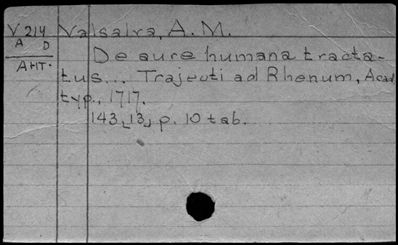 V 214 Valsalva, A. M.
A D
De aure humana tracta-
AHT.
tus... Trajecti ad Rhenum, Acad
typ., 1717.
143, [13] p. 10 tab.